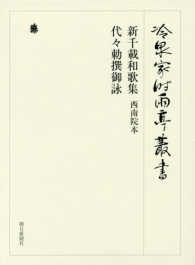 冷泉家時雨亭叢書
新千載和歌集 西南院本
代々勅撰御詠
朝日新聞社